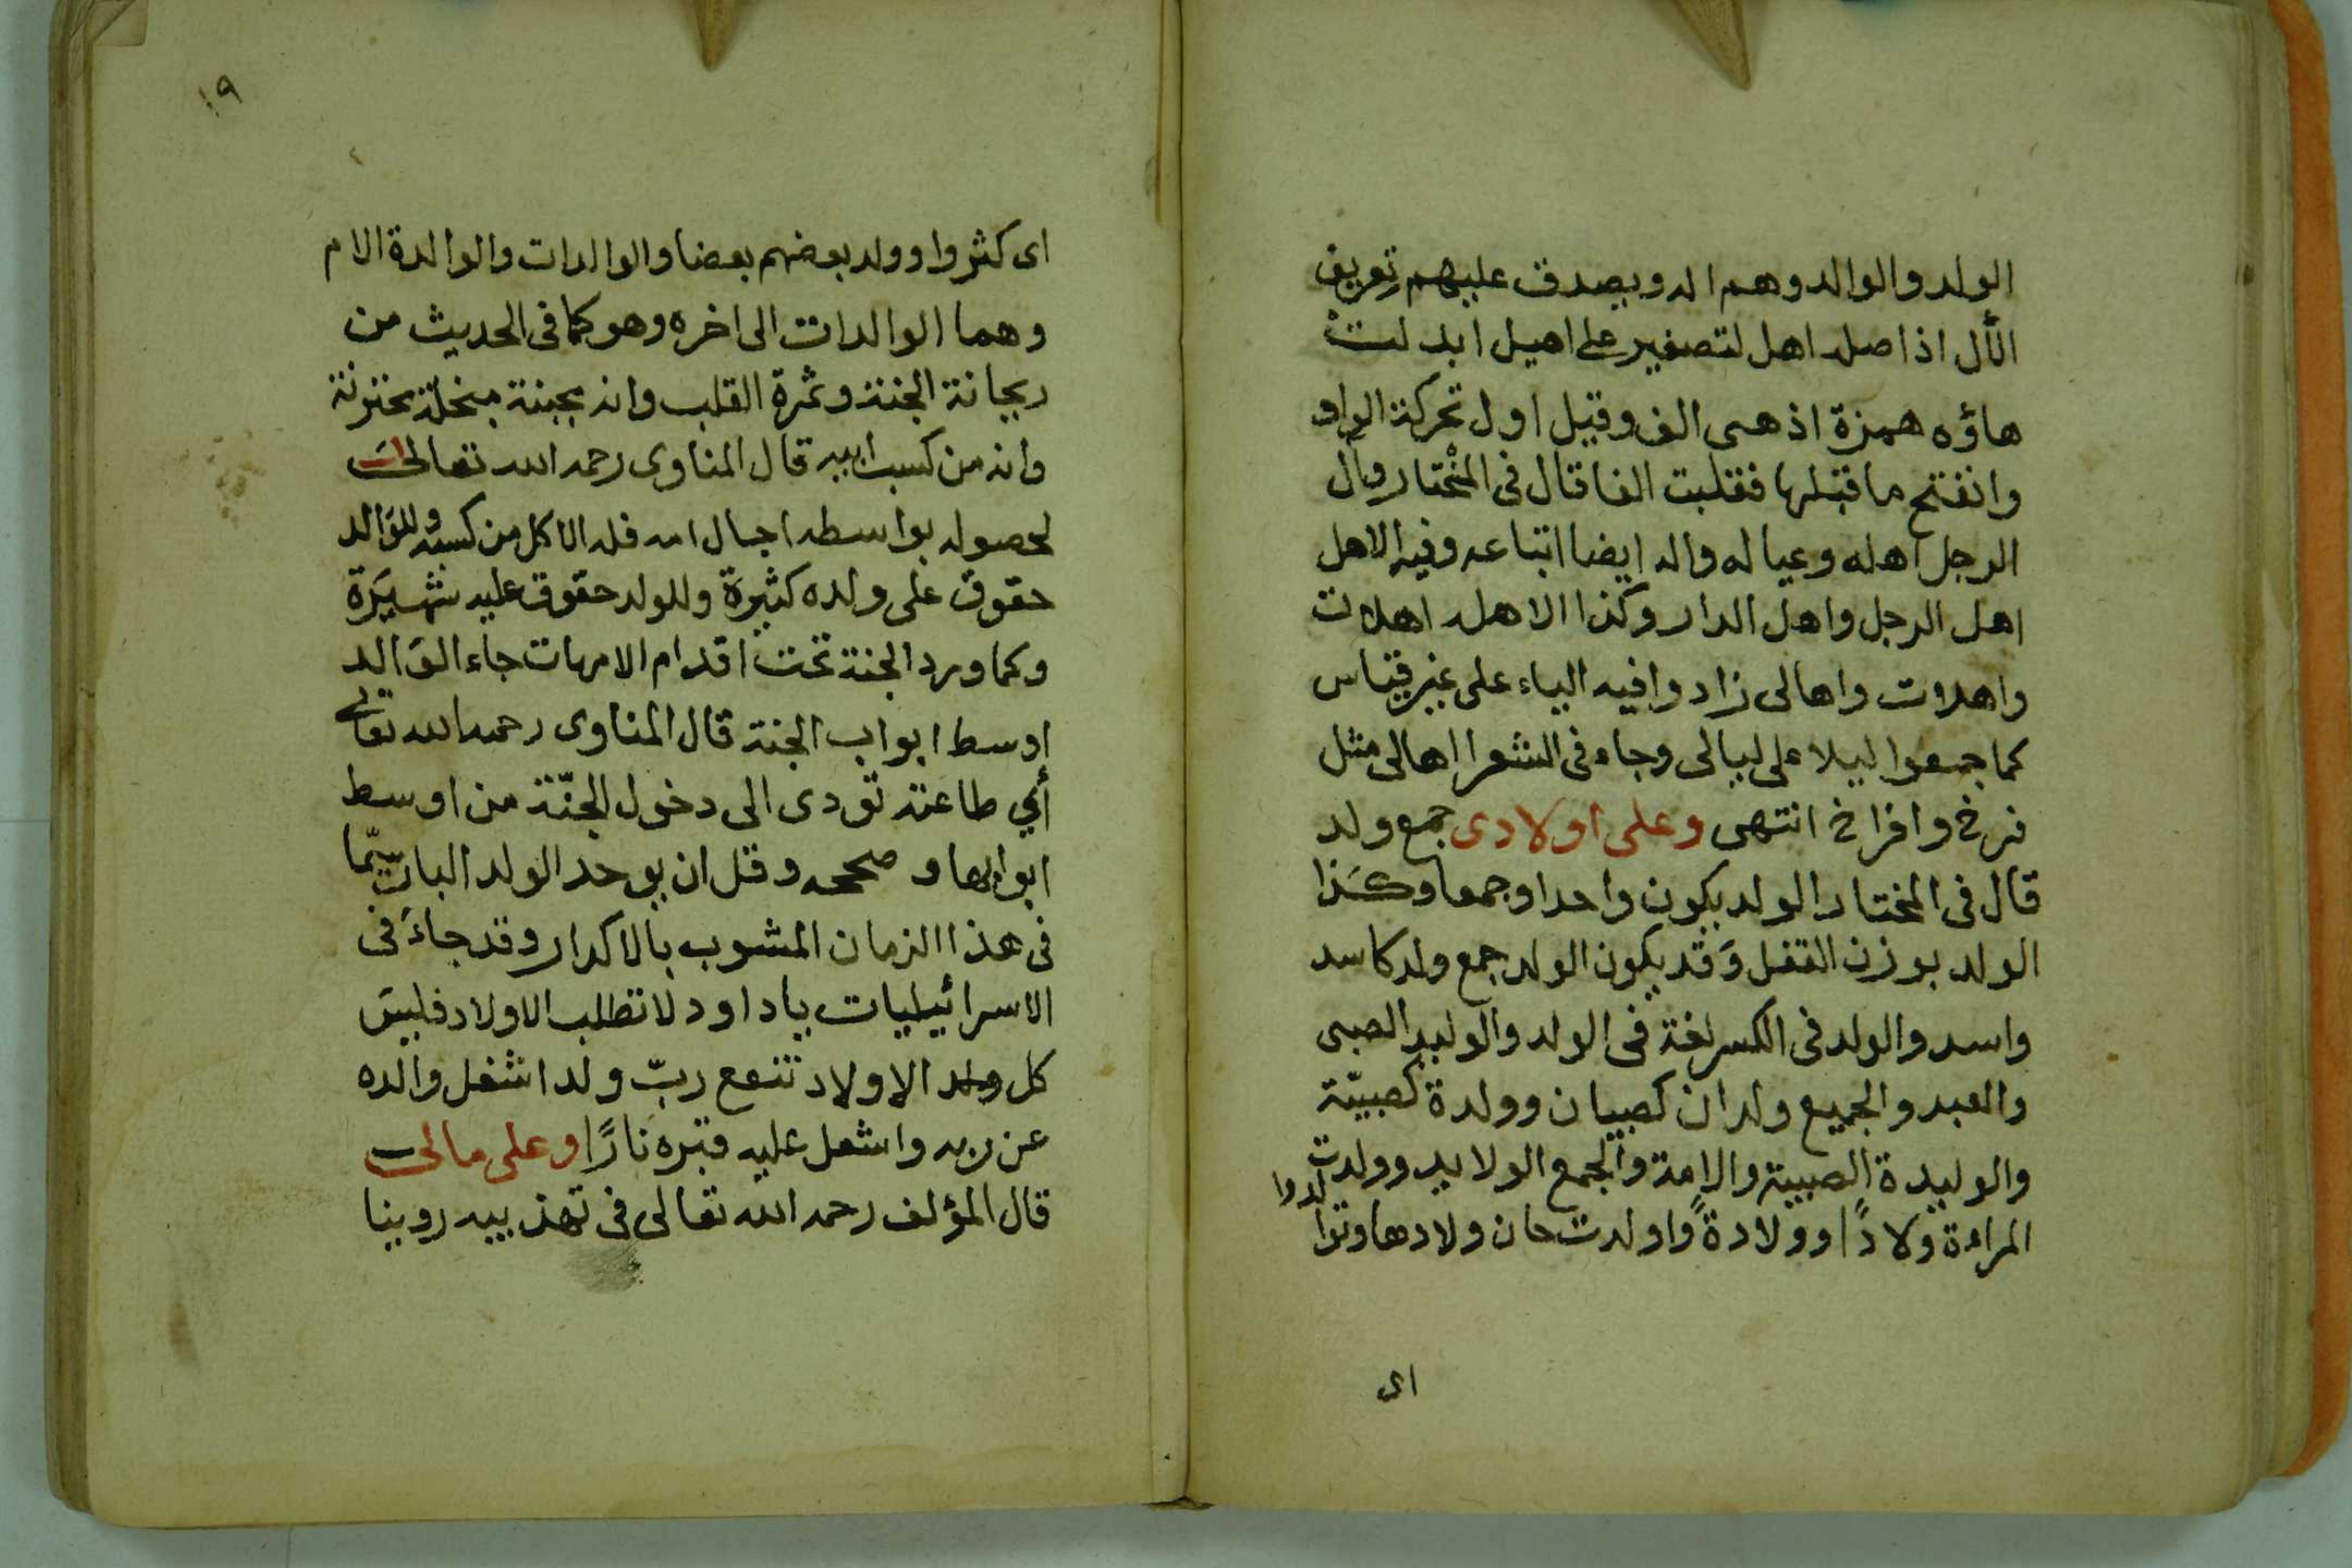 الولد والوالد وهم اله ويصدق عليهم تعريف
الأل اذا صله اهل لتصغير على اهيل ابدلت
هاؤه همزة اذ هى الف وقيل اول تحركة الواو
وانفتح ما قبلها فقلبت الفا قال فى المختار وآل
الرجل اهله وعياله واله ايضا اتباعه وفيه الاهل
اهل الرجل واهل الدار وكذا الاهله اهلات
واهلات واهالى زادوا فيه الياء على غير قياس
كما جمعوا ليلا على ليالى وجاء فى الشعرا اهالى مثل
فرخ وافراخ انتهى وعلى اولادى جمع ولد
قال فى المختار الولد يكون واحدا وجمعا وكذا
الولد بوزن القفل وقد يكون الولد جمع ولد كاسد
واسد والولد فى الكسر لغة فى الولد والوليد الصبى
والعبد والجميع ولدان كصبيان وولدة كصبيّة
والوليدة الصبية والامة والجمع الولايد وولدت
المراءة ولادًا وولادةً واولدت حان ولادها وتوالدوا
اى
١٩
اى كثروا وولد بعضهم بعضا والوالدات والوالدة الام
وهما الوالدات الى اخره وهو كما فى الحديث من
ريحانة الجنة وثمرة القلب وانه مجبنة مبخلة محزنة
وانه من كسب ابيه قال المناوى رحمه الله تعالى
لحصوله بواسطه احبال امه فله الاكل من كسبه وللوالد
حقوق على ولده كثيرة وللولد حقوق عليه شهيرة
وكما ورد الجنة تحت اقدام الامهات جاء الوالد
اوسط ابواب الجنة قال المناوى رحمه الله تعالى
أي طاعته تودى الى دخول الجنّة من اوسط
ابوابها و صححه وقل ان يوجد الولد البار سيّما
فى هذا الزمان المشوب بالاكدار وقد جاء فى
الاسرائيليات ياداود لا تطلب الاولاد فليس
كل ولد الاولاد تنفع ربّ ولد اشغل والده
عن ربه واشعل عليه قبره نارًا وعلى مالى
قال المؤلف رحمه الله تعالى فى تهذيبه روينا